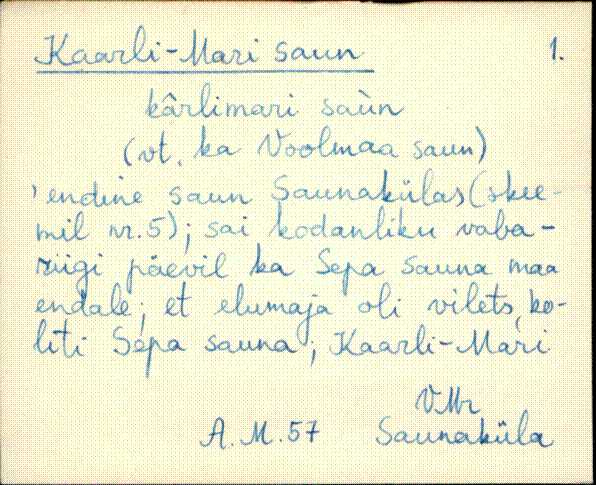 Kaarli-Mari saun 1.
kârlimari saùn
(vt. ka Voolmaa saun)
'endine saun Saunakülas (skee-
mil nr. 5); sai kodanliku vaba-
riigi päevil ka Sepa sauna maa
endale; et elumaja oli vilets, ko-
liti Sepa sauna; Kaarli-Mari
VMr
A.M. 57 Saunaküla